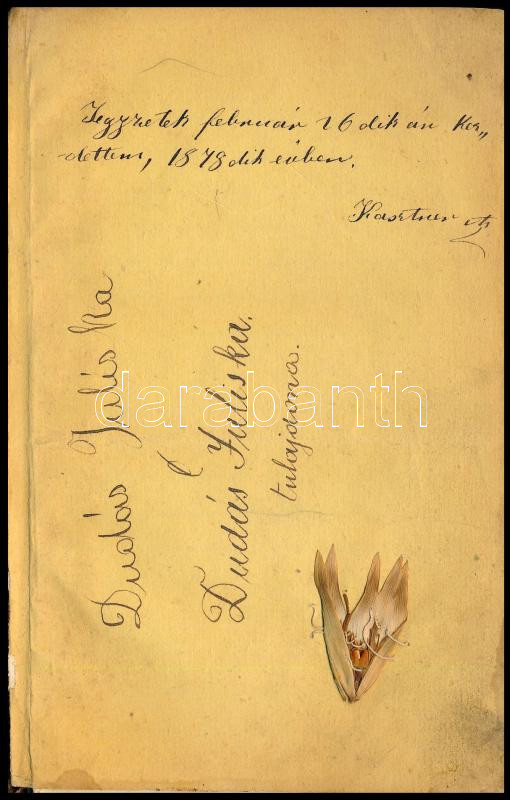 Jegyzetek február 26dik án Kez„
dettem, 1878dik évben.
Kasztner
Dudás Julis ka
Dudás Juliska.
tulajdona.
darabanth